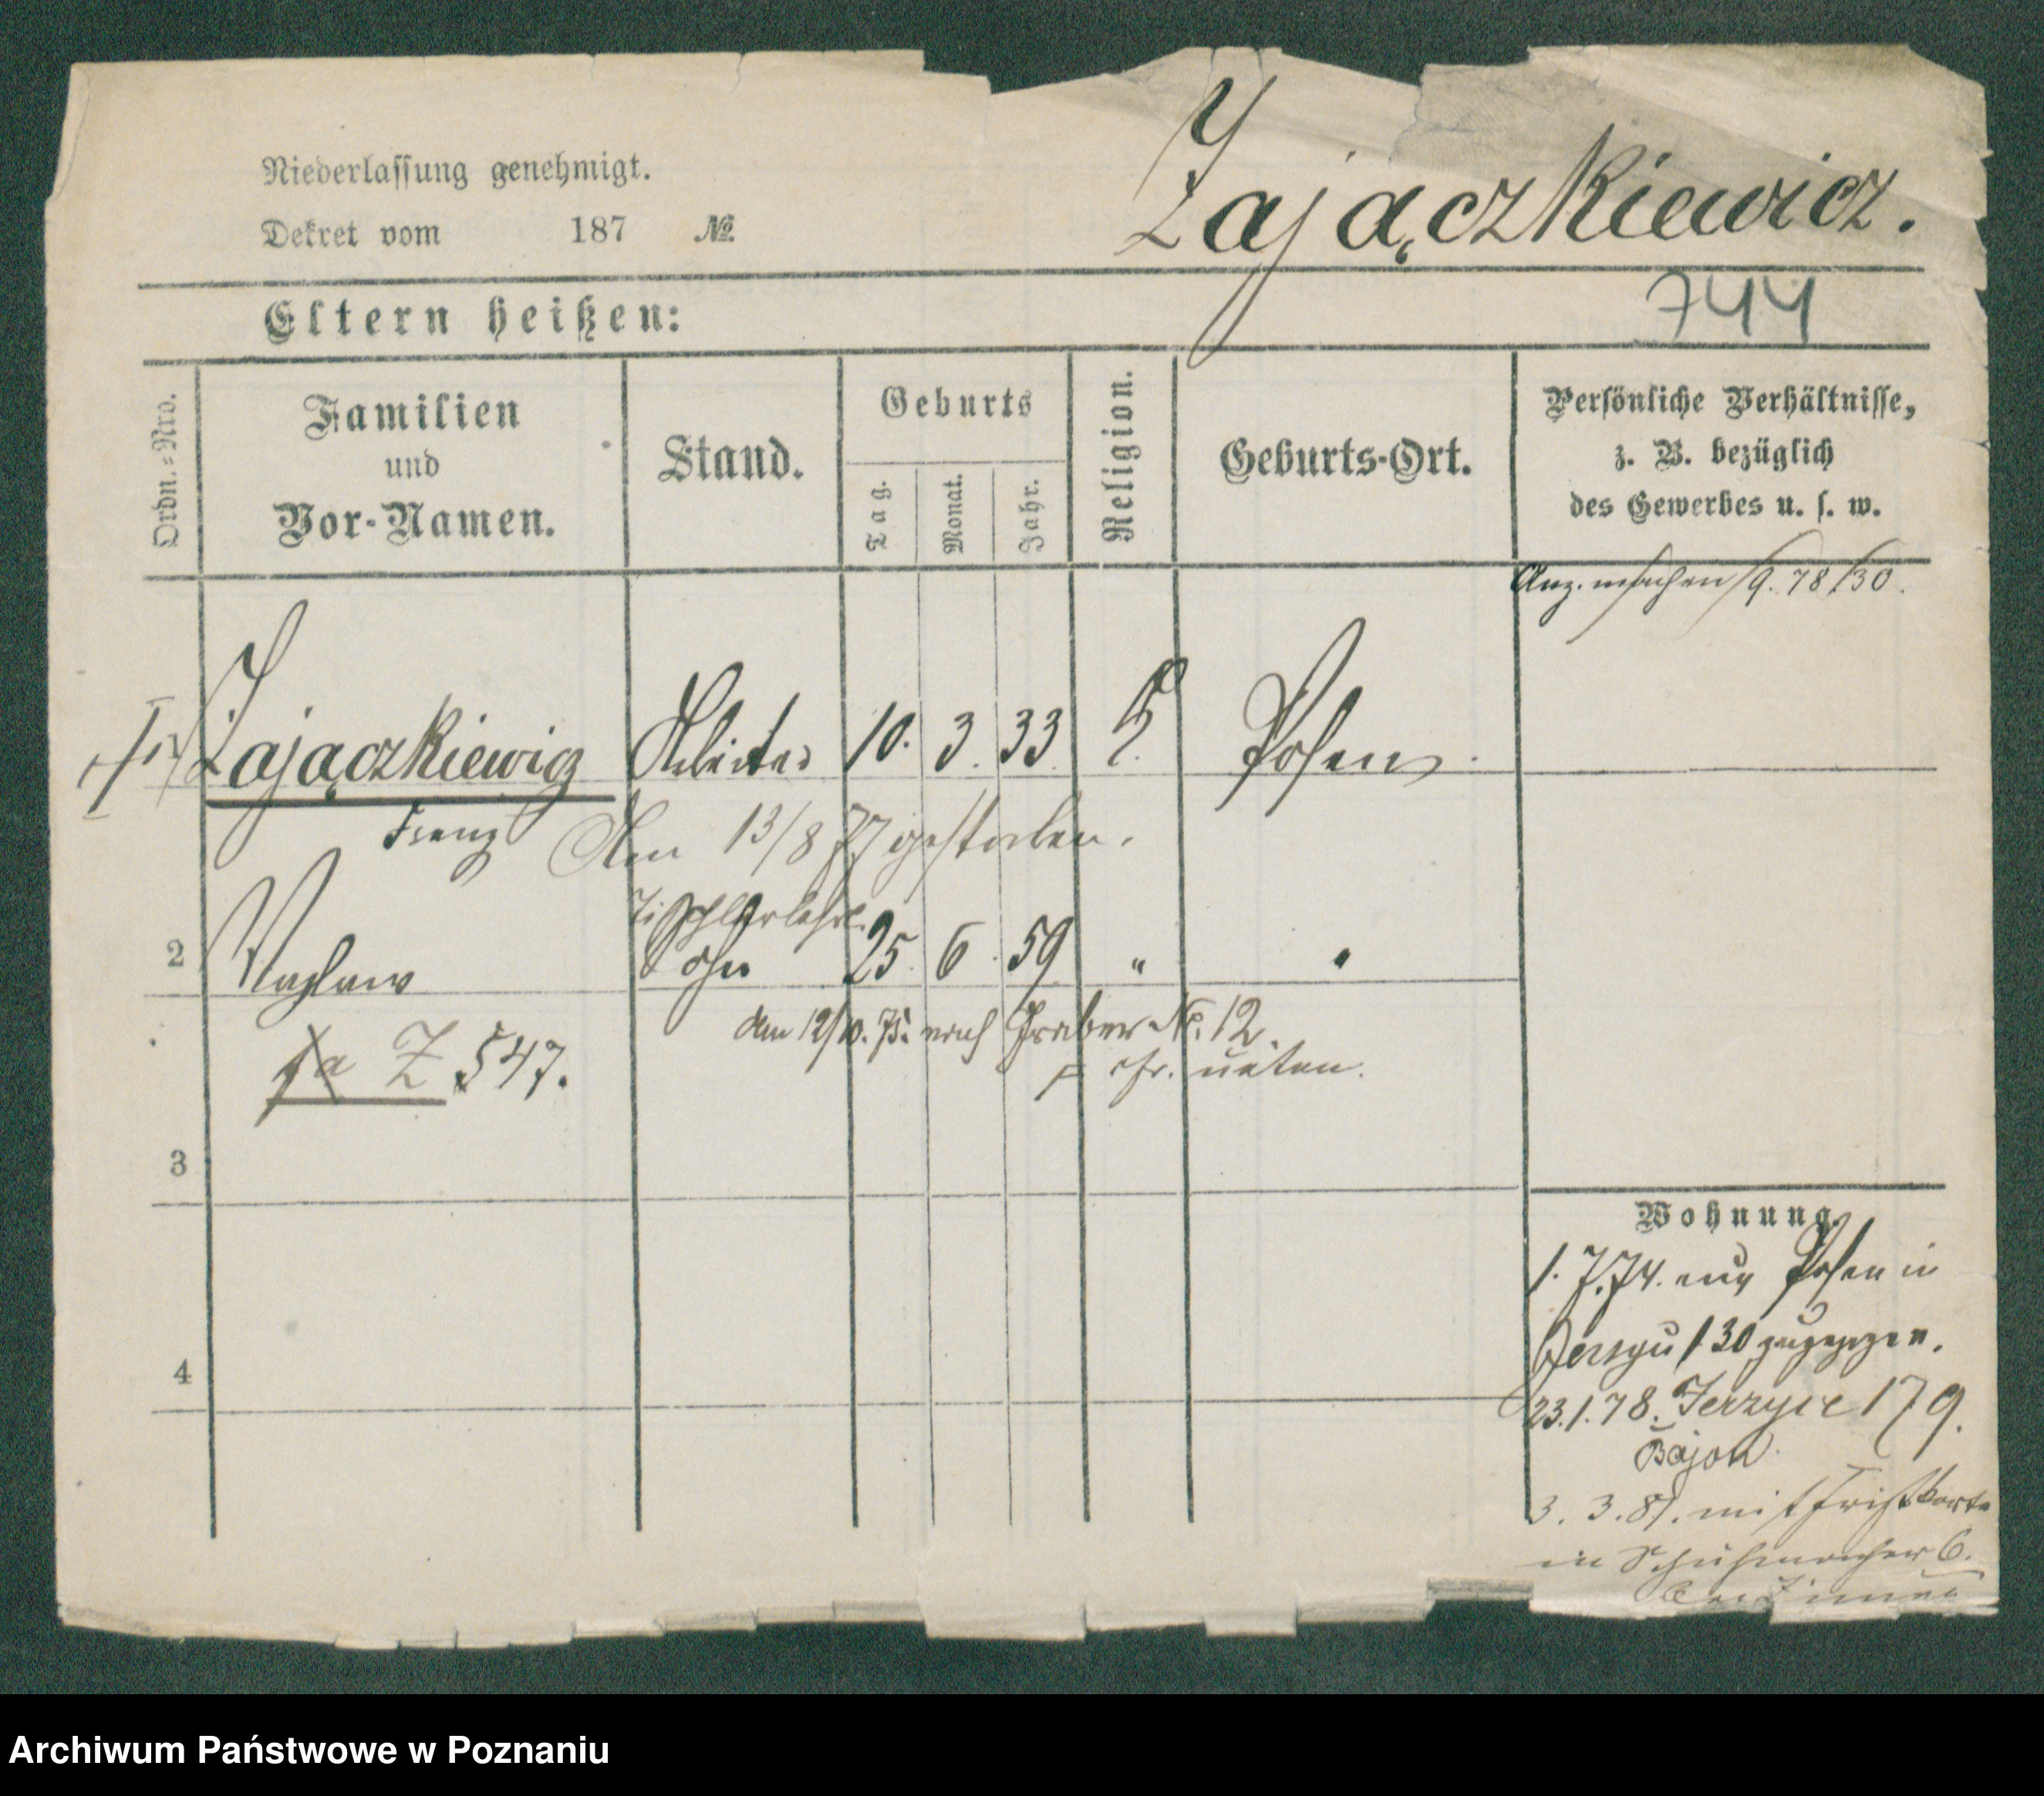 Niederlassung genehmigt.
Dekret vom 187 №
Zajączkiewicz.
744
Eltern heißen:
Ordn.=Nro.
Familien
und
Vor-Namen.
Stand.
Geburts
Tag.
Monat.
Jahr.
Religion.
Geburts-Ort.
Persönliche Verhältnisse,
z. B. bezüglich
des Gewerbes u. s. w.
Anz. machen 9. 78/30.
Zajączkiewicz Arbeiter 10. 3. 33 k. Posen.
Franz
Am 13/8 77 gestorben.
Tischlerlehrl.
2 Vaslaw Sohn 25. 6. 59 " "
Z 547.
den 12/10. 75. nach Graben No. 12
unten.
3
4
Wohnung.
1. 7. 74. aus Posen in
130 zugezogen.
23.1.78. Jerzyce 179.
Bajon.
3. 3. 81. mit
in Schuhmacher 6.